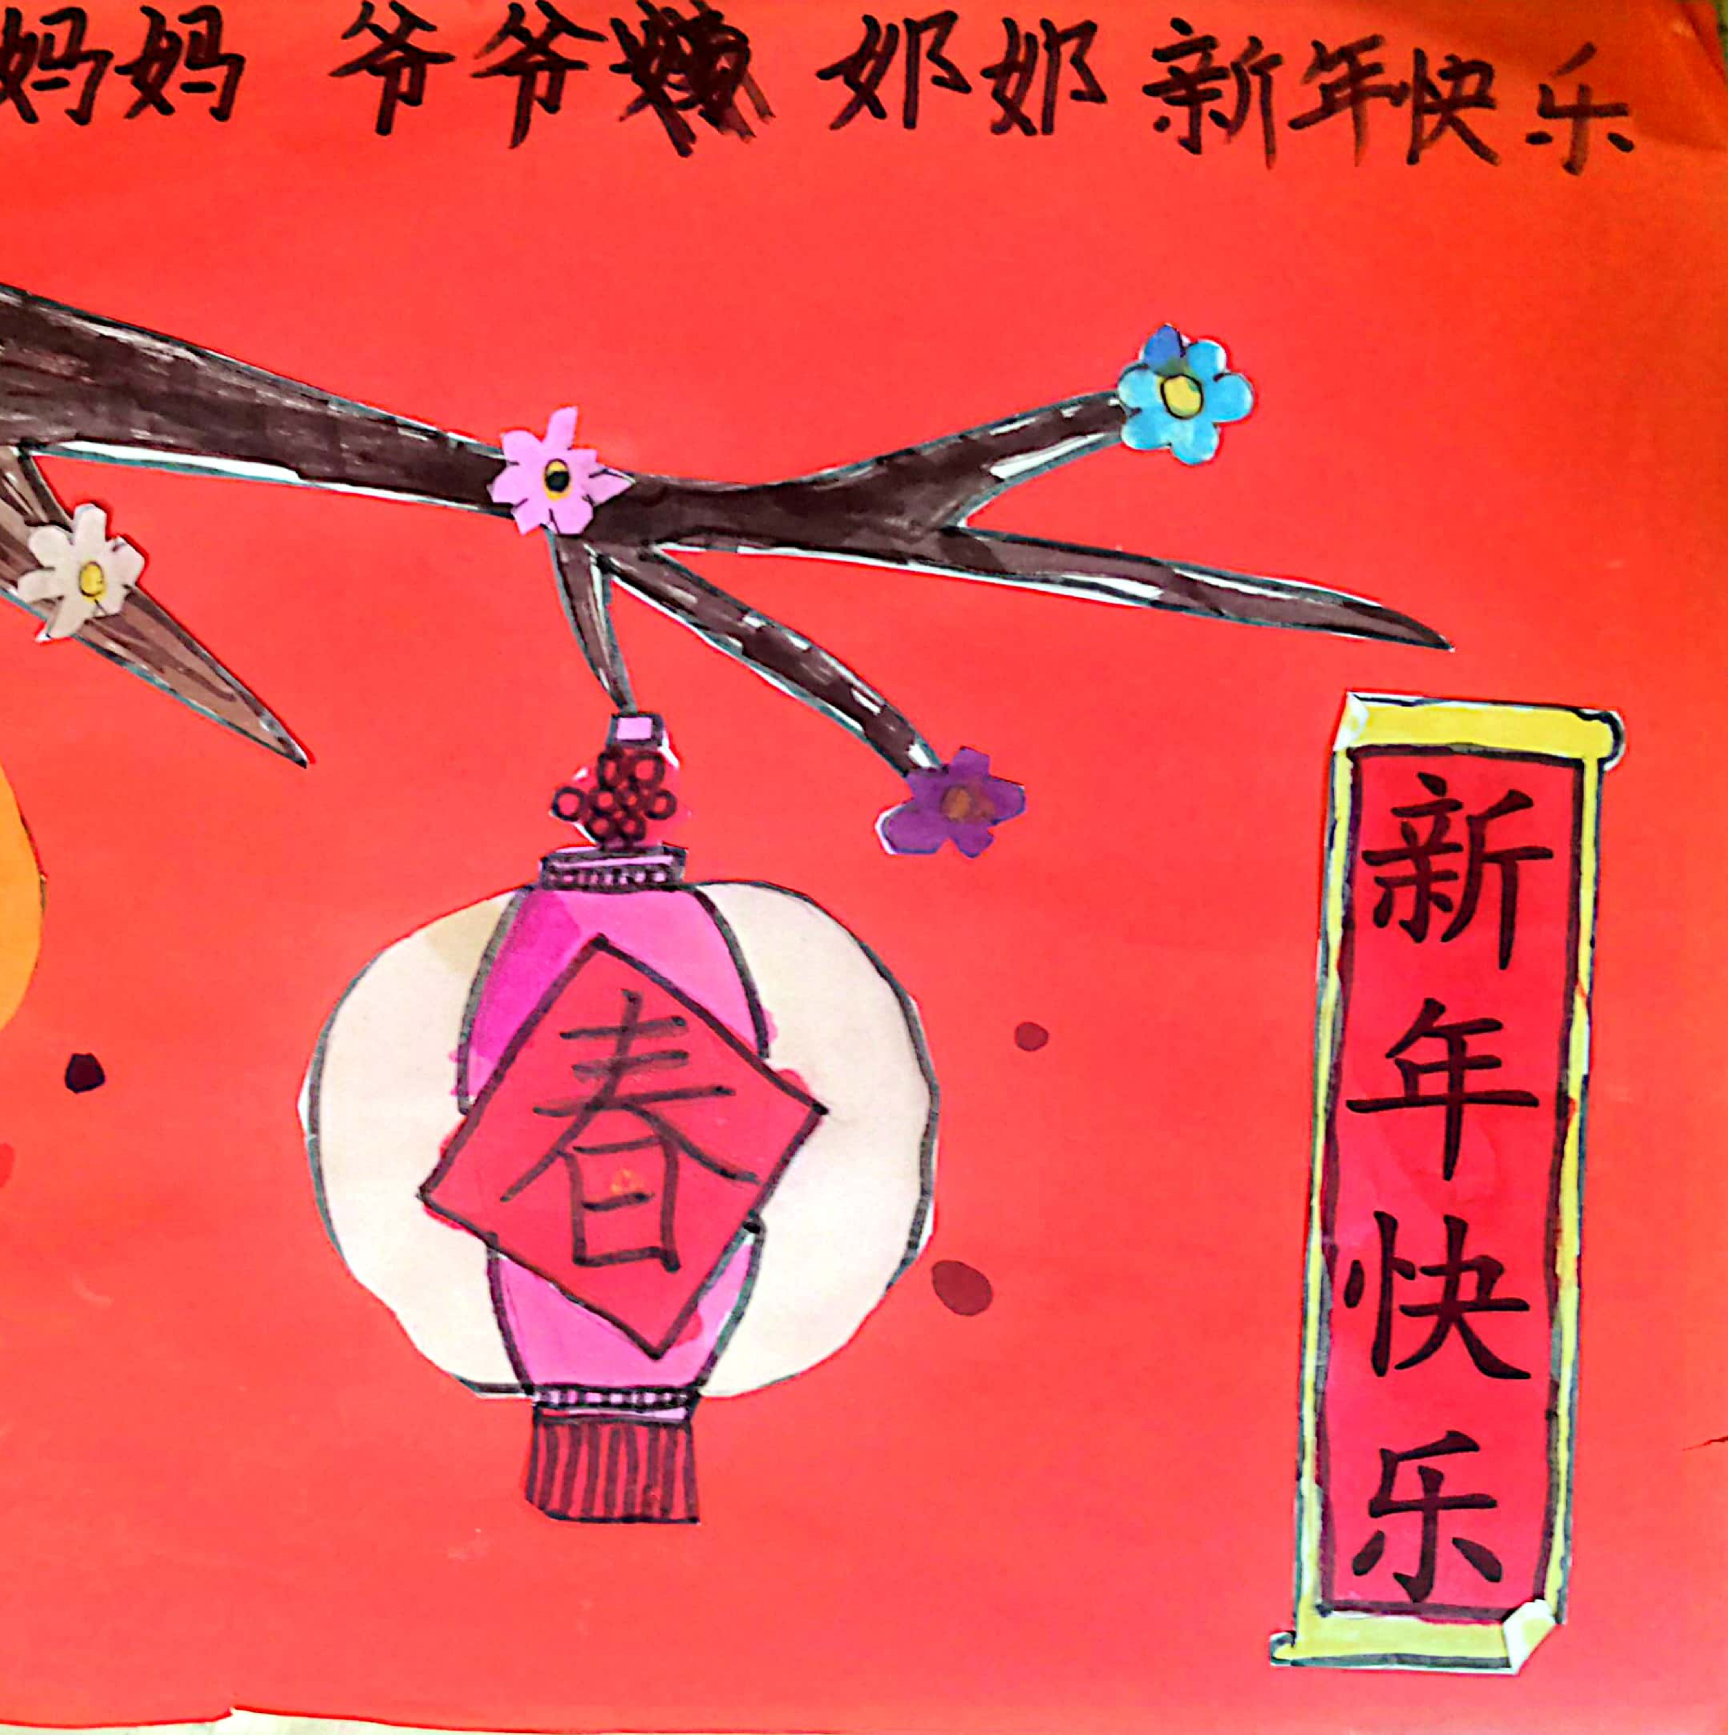 妈妈 爷爷 奶奶新年快乐
春
新年快乐